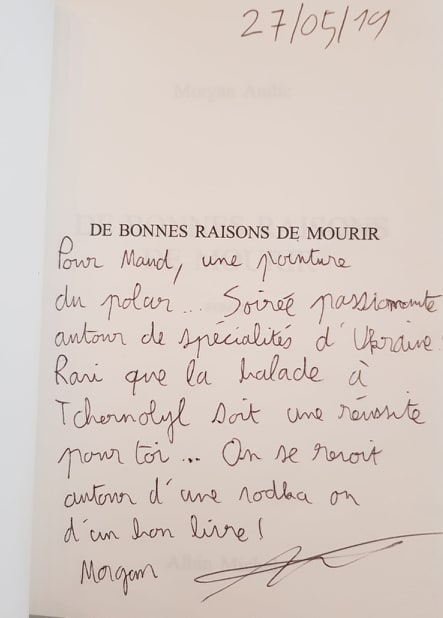 27/05/19
Morgan Audic
DE BONNES RAISONS DE MOURIR
Pour Maud, une pointure
du polar... Soirée passionnante
autour de spécialités d'Ukraine.
Ravi que la balade à
Tchernobyl soit une réussite
pour toi... On se revoit
autour d'une vodka ou
d'un bon livre !
Morgan
Albin Michel